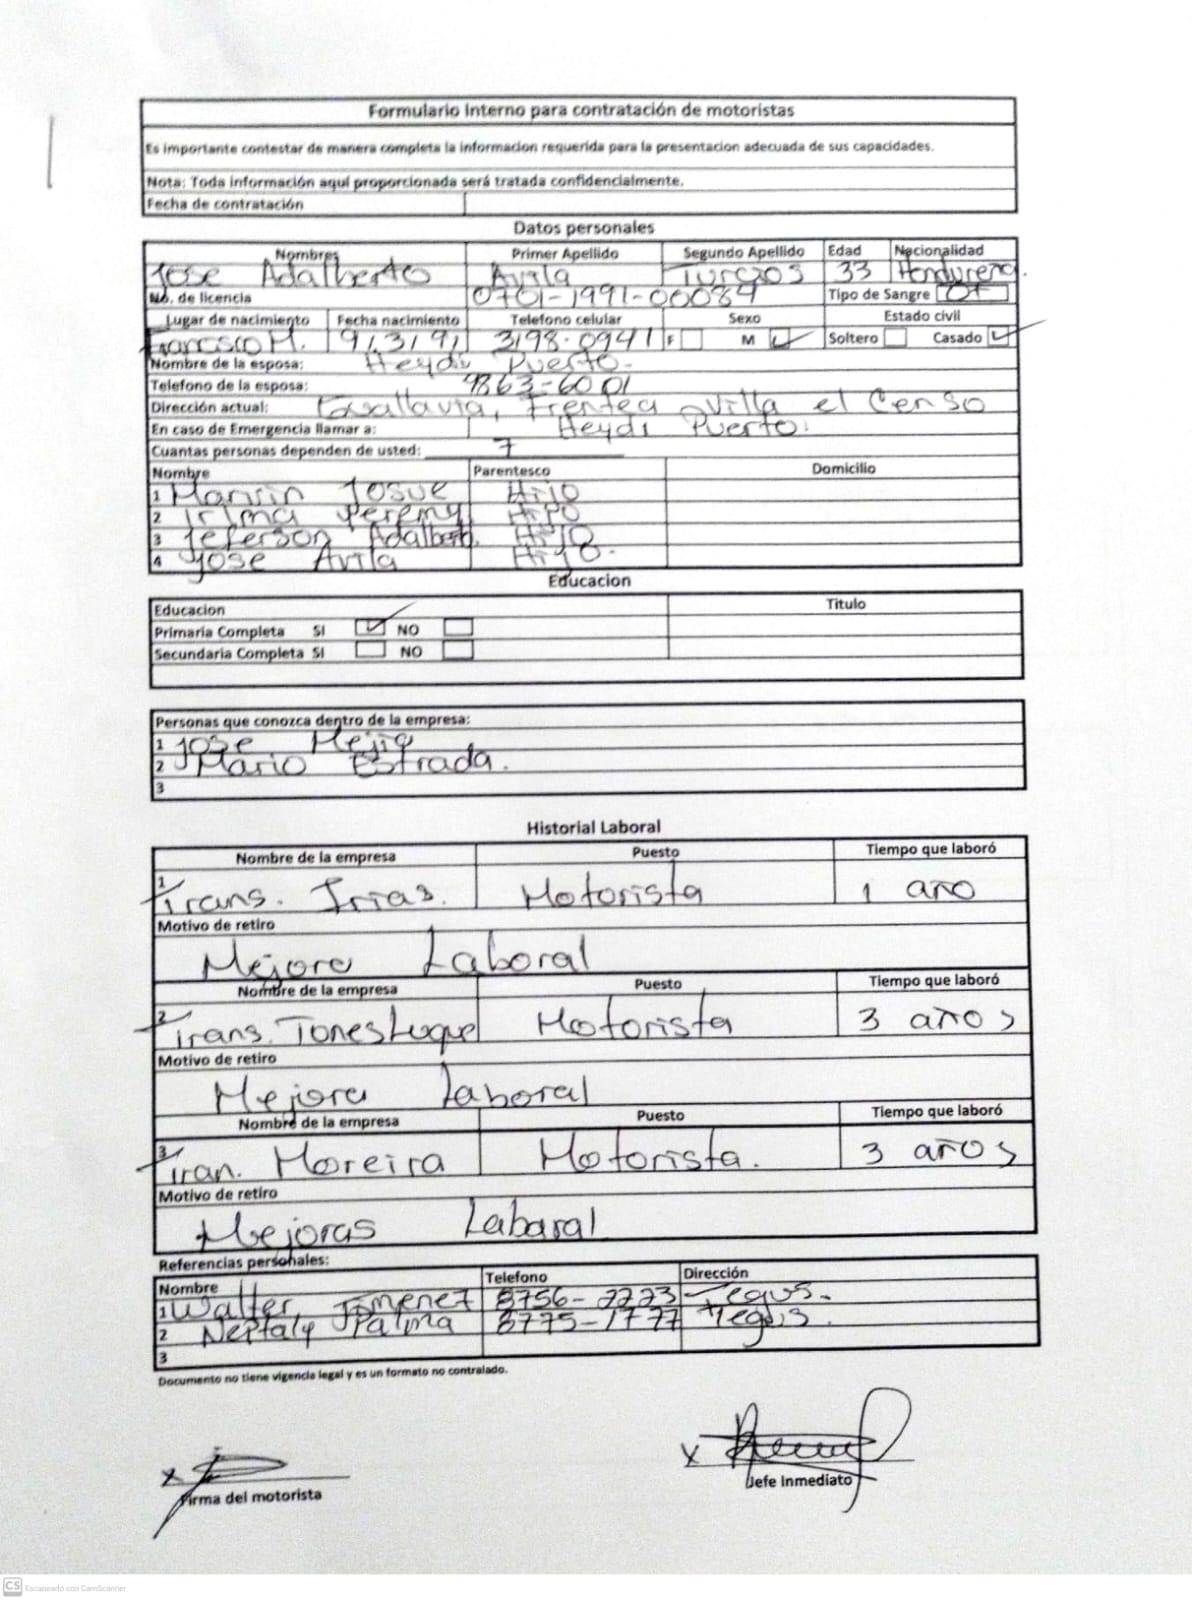 Formulario Interno para contratación de motoristas
Es importante contestar de manera completa la informacion requerida para la presentacion adecuada de sus capacidades.
Nota: Toda información aquí proporcionada será tratada confidencialmente.
Fecha de contratación
Datos personales
Nombres Primer Apellido Segundo Apellido Edad Nacionalidad
Jose Adalberto Avila Turcios 33 Hondureña.
No. de licencia 0701-1991-00084 Tipo de Sangre O+
Lugar de nacimiento Fecha nacimiento Telefono celular Sexo Estado civil
Francisco M. 9/3/91 3198-0941 F M Soltero Casado
Nombre de la esposa: Heydi Puerto.
Telefono de la esposa: 9863-6001
Dirección actual: Frente a Villa el Censo
En caso de Emergencia llamar a: Heydi Puerto.
Cuantas personas dependen de usted: 7
Nombre Parentesco Domicilio
1 Josue Hijo
2 Yeremy Hijo
3 Jeferson Adalberto Hijo
4 Jose Avila Hijo.
Educacion
Educacion Titulo
Primaria Completa SI NO
Secundaria Completa SI NO
Personas que conozca dentro de la empresa:
1 Jose Mejia
2 Mario Estrada.
3
Historial Laboral
Nombre de la empresa Puesto Tiempo que laboró
1 Trans. Irias. Motorista 1 año
Motivo de retiro
Mejora Laboral
Nombre de la empresa Puesto Tiempo que laboró
2 Trans. Motorista 3 años
Motivo de retiro
Mejora Laboral
Nombre de la empresa Puesto Tiempo que laboró
3 Tran. Moreira Motorista. 3 años
Motivo de retiro
Mejoras Labaral
Referencias personales:
Nombre Telefono Dirección
1 Walter Jimenez 8756-2223 Tegus.
2 Neptaly Palma 8775-1777 Tegus.
3
Documento no tiene vigencia legal y es un formato no contralado.
X X
Firma del motorista Jefe Inmediato
CS Escaneado con CamScanner